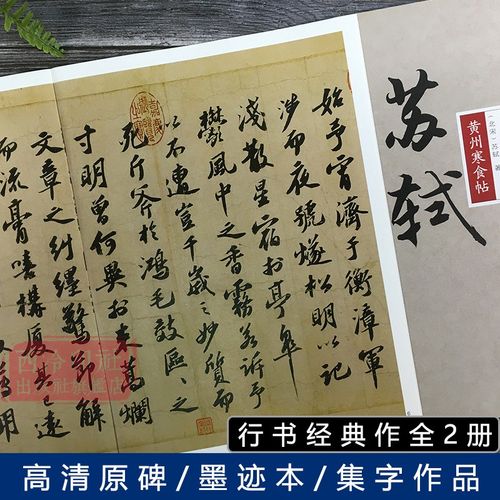 始予宵濟于衡漳軍
涉而夜號燧松明以記
淺散星宿於亭皋
鬱風中之香霧若訴予
以不遭豈千歲之妙質而
死斤斧於鴻毛效區區之
寸明曾何異於束蒿爛
文章之糾纏驚節解
而流膏嘻構厦其已遠
苏轼
(北宋)苏轼 著
黄州寒食帖
行书经典作全2册
高清原碑/墨迹本/集字作品